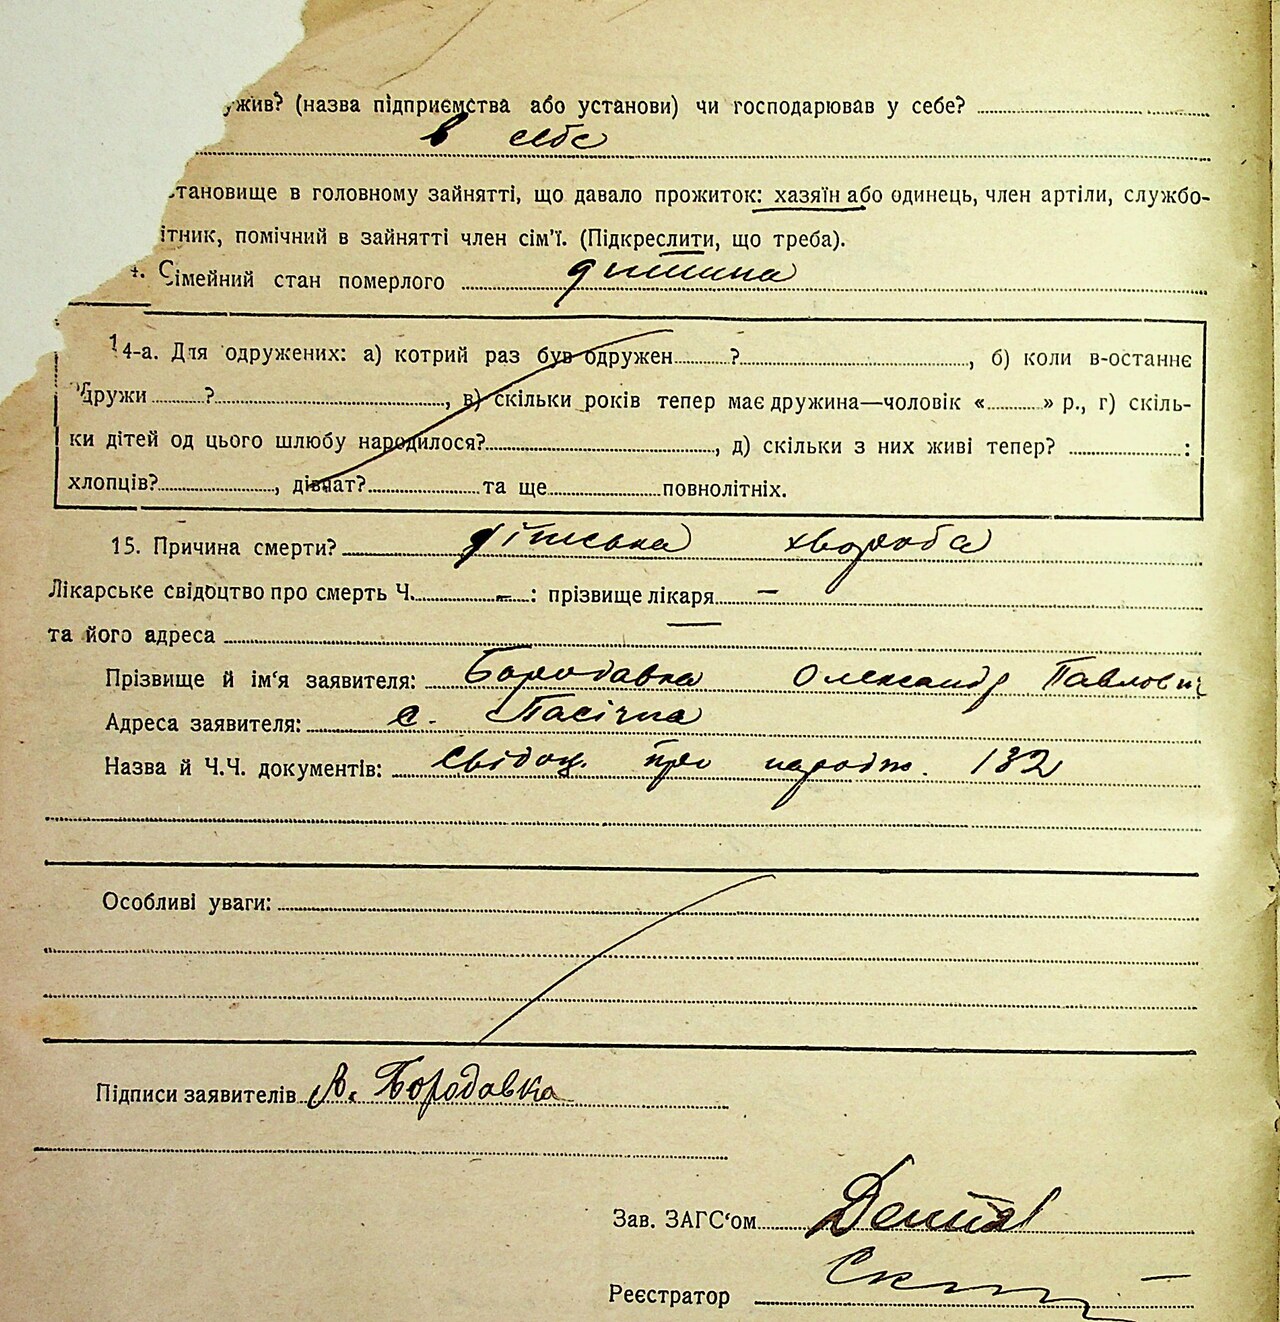 ужив? (назва підприємства або установи) чи господарював у себе?
в себе
становище в головному зайнятті, що давало прожиток: хазяїн або одинець, член артіли, службо-
ітник, помічний в зайнятті член сім'ї. (Підкреслити, що треба).
4. Сімейний стан померлого дитина
14-а. Для одружених: а) котрий раз був одружен ? , б) коли в-останнє
одружи ? , в) скільки років тепер має дружина—чоловік « » р., г) скіль-
ки дітей од цього шлюбу народилося? , д) скільки з них живі тепер? :
хлопців? , дівчат? та ще повнолітніх.
15. Причина смерти? дітська хвороба
Лікарське свідоцтво про смерть Ч. – : прізвище лікаря –
та його адреса —
Прізвище й ім'я заявителя: Бородавка Олександр Павлович
Адреса заявителя: с. Пасічна
Назва й Ч.Ч. документів: Свідоц. про народж. 132
Особливі уваги:
Підписи заявителів А. Бородавка
Зав. ЗАГС'ом
Реєстратор